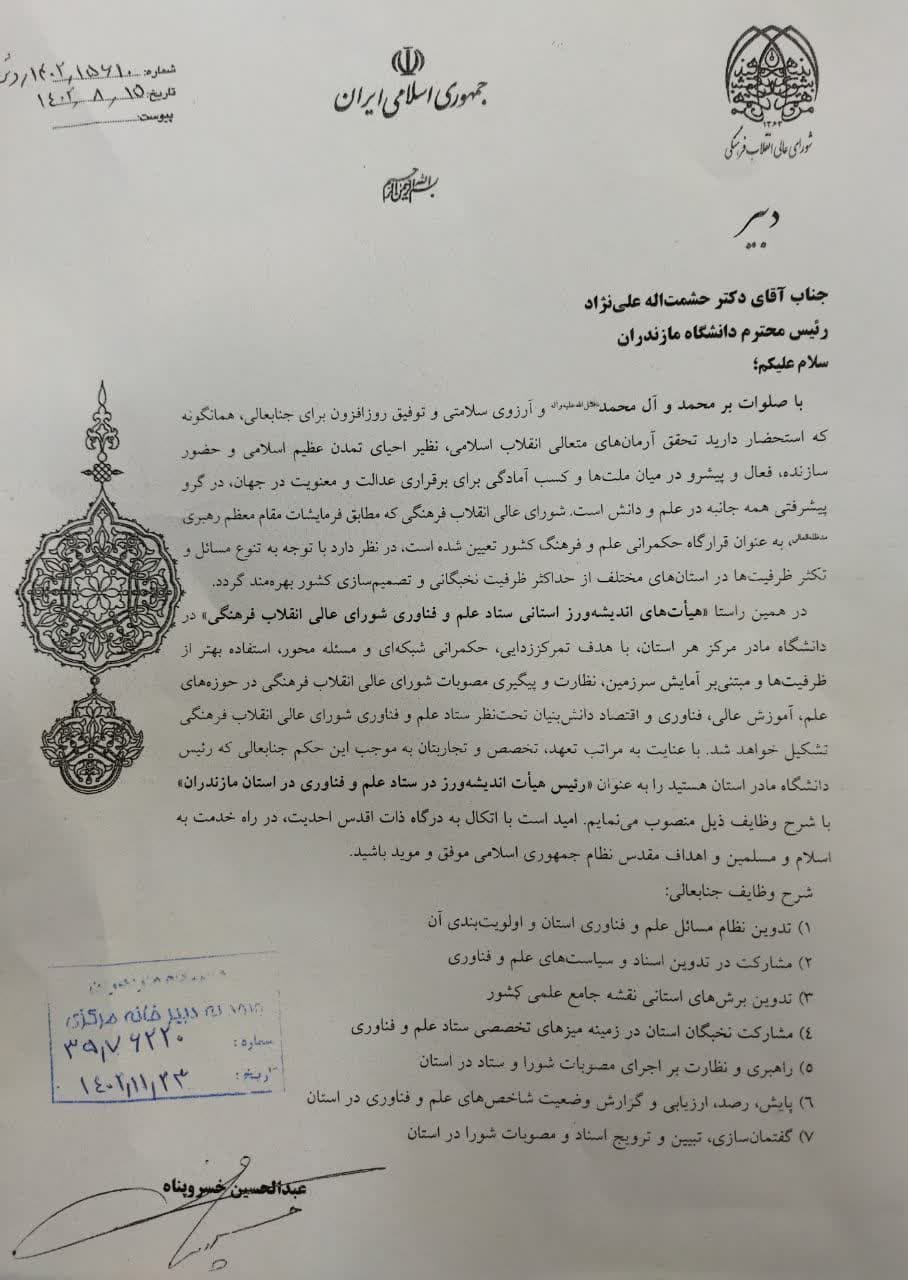 جمهوری اسلامی ایران
شورای عالی انقلاب فرهنگی
۱۳۶۳
شماره: ۱۴۰۲/۱۵۶۱۰/دش
تاریخ: ۱۴۰۲/۸/۱۵
پیوست:
بسم الله الرحمن الرحیم
دبیر
جناب آقای دکتر حشمت‌اله علی‌نژاد
رئیس محترم دانشگاه مازندران
سلام علیکم؛
با صلوات بر محمد و آل محمد صلی‌الله‌علیه‌وآله و آرزوی سلامتی و توفیق روزافزون برای جنابعالی، همانگونه
که استحضار دارید تحقق آرمان‌های متعالی انقلاب اسلامی، نظیر احیای تمدن عظیم اسلامی و حضور
سازنده، فعال و پیشرو در میان ملت‌ها و کسب آمادگی برای برقراری عدالت و معنویت در جهان، در گرو
پیشرفتی همه جانبه در علم و دانش است. شورای عالی انقلاب فرهنگی که مطابق فرمایشات مقام معظم رهبری
مدظله‌العالی، به عنوان قرارگاه حکمرانی علم و فرهنگ کشور تعیین شده است، در نظر دارد با توجه به تنوع مسائل و
تکثر ظرفیت‌ها در استان‌های مختلف از حداکثر ظرفیت نخبگانی و تصمیم‌سازی کشور بهره‌مند گردد.
در همین راستا «هیأت‌های اندیشه‌ورز استانی ستاد علم و فناوری شورای عالی انقلاب فرهنگی» در
دانشگاه مادر مرکز هر استان، با هدف تمرکززدایی، حکمرانی شبکه‌ای و مسئله محور، استفاده بهتر از
ظرفیت‌ها و مبتنی‌بر آمایش سرزمین، نظارت و پیگیری مصوبات شورای عالی انقلاب فرهنگی در حوزه‌های
علم، آموزش عالی، فناوری و اقتصاد دانش‌بنیان تحت‌نظر ستاد علم و فناوری شورای عالی انقلاب فرهنگی
تشکیل خواهد شد. با عنایت به مراتب تعهد، تخصص و تجاربتان به موجب این حکم جنابعالی که رئیس
دانشگاه مادر استان هستید را به عنوان «رئیس هیأت اندیشه‌ورز در ستاد علم و فناوری در استان مازندران»
با شرح وظایف ذیل منصوب می‌نمایم. امید است با اتکال به درگاه ذات اقدس احدیت، در راه خدمت به
اسلام و مسلمین و اهداف مقدس نظام جمهوری اسلامی موفق و موید باشید.
شرح وظایف جنابعالی:
۱) تدوین نظام مسائل علم و فناوری استان و اولویت‌بندی آن
۲) مشارکت در تدوین اسناد و سیاست‌های علم و فناوری
۳) تدوین برش‌های استانی نقشه جامع علمی کشور
۴) مشارکت نخبگان استان در زمینه میزهای تخصصی ستاد علم و فناوری
۵) راهبری و نظارت بر اجرای مصوبات شورا و ستاد در استان
۶) پایش، رصد، ارزیابی و گزارش وضعیت شاخص‌های علم و فناوری در استان
۷) گفتمان‌سازی، تبیین و ترویج اسناد و مصوبات شورا در استان
دبیرخانه مرکزی
شماره: ۳۹/۷۶۲۲۰
تاریخ: ۱۴۰۲/۱۱/۲۳
عبدالحسین خسروپناه